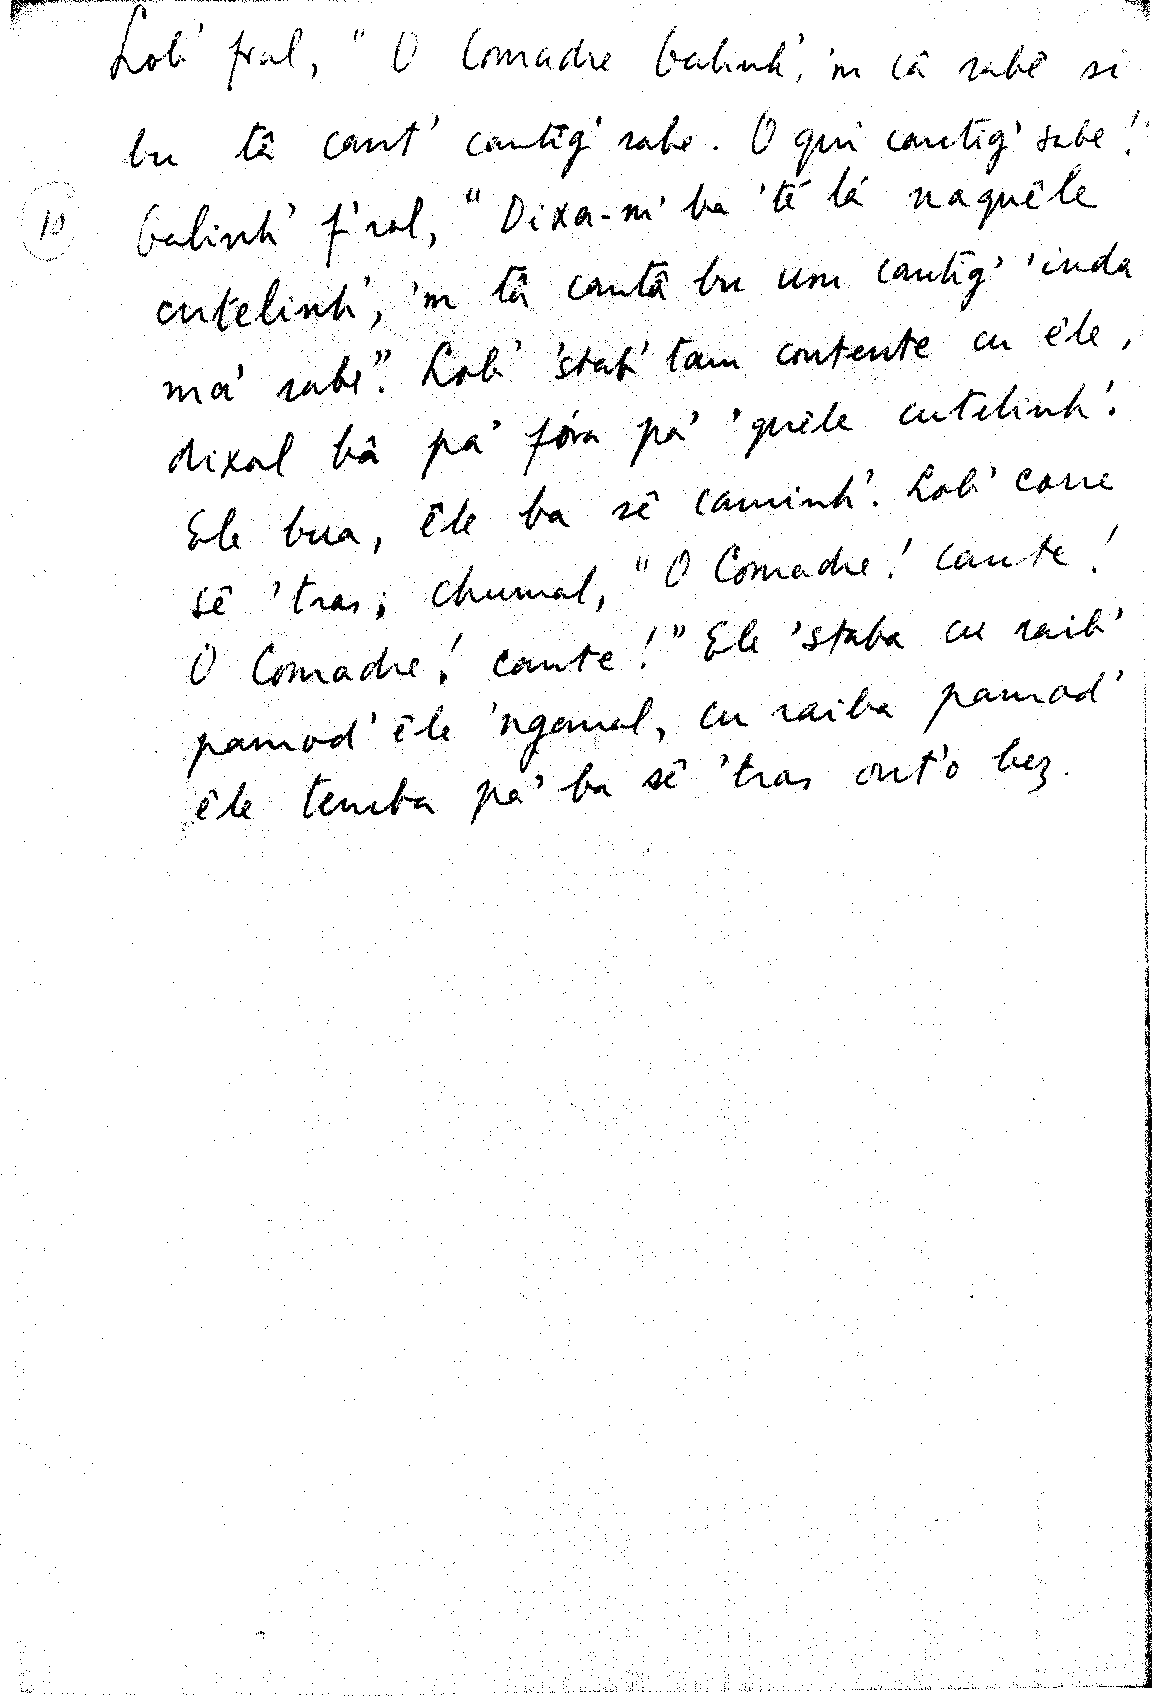 Lob' fral, "O Comadre Galinh', 'm câ sabê si
bu tâ cant' cantig' sabe. O qui cantig' sabe!"
10
Galinh' f'ral, "Dixa-m' ba 'té lá naquêle
cutelinh', 'm tâ cantâ bu um cantig' 'inda
má' sabe". Lob' 'stab' tam contente cu êle,
dixal bâ pa' fóra pa' 'quêle cutelinh'.
Ele bua, êle ba sê caminh'. Lob' corre
sê 'tras, chumal, "O Comadre! cante!
O Comadre! cante!" Ele 'staba cu raib'
pamod' êle 'nganal, cu raiba pamod'
êle temba pa' ba sê 'tras out'o bez.